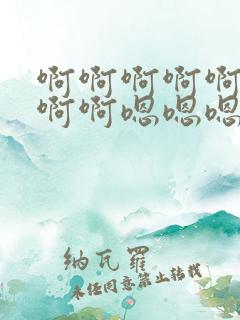 啊啊啊啊啊
啊啊嗯嗯嗯
纳瓦罗
未经同意禁止转载